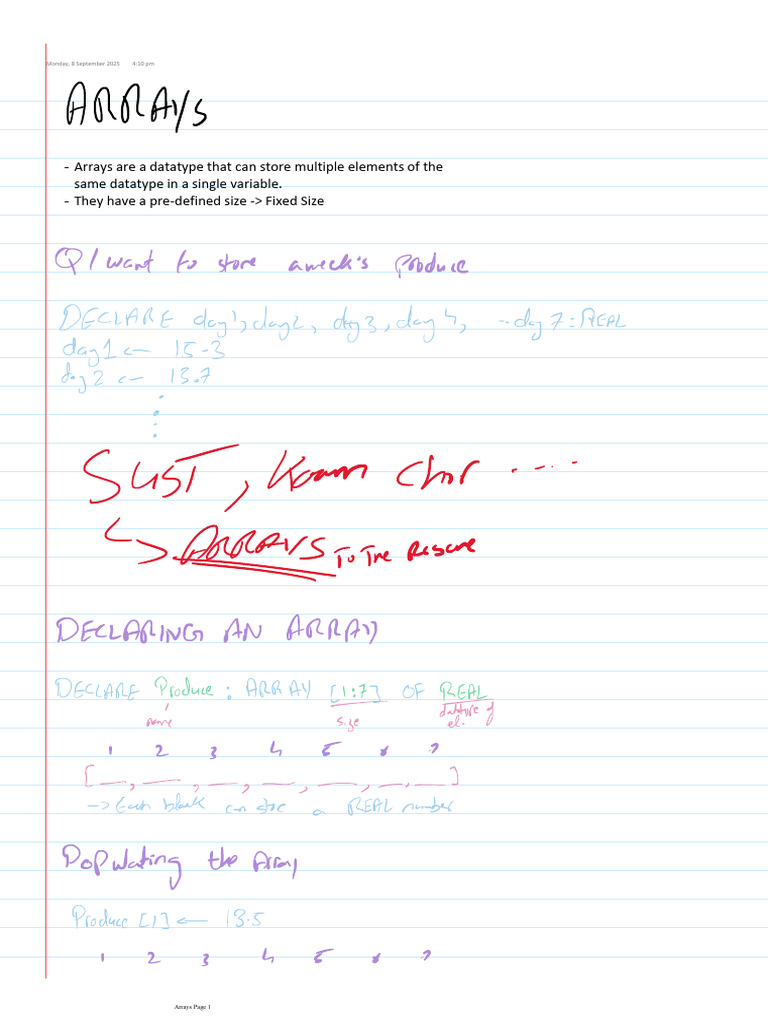 Monday, 8 September 2025 4:10 pm
ARRAYS
- Arrays are a datatype that can store multiple elements of the
same datatype in a single variable.
- They have a pre-defined size -> Fixed Size
Q/ want to store a week's produce
DECLARE day1, day2, day3, day4, --day7: REAL
day1 <- 15-3
day2 <- 13.7
SUST, Kaam Chor ....
ARRAYS To The Rescue
DECLARING AN ARRAY
DECLARE Produce: ARRAY [1:7] OF REAL
name size datatype of
el.
1 2 3 4 5 6 7
[__, __, __, __, __, __, __]
-> Each blank can store a REAL number
Populating the Array
Produce [1] <- 13.5
1 2 3 4 5 6 7
Arrays Page 1